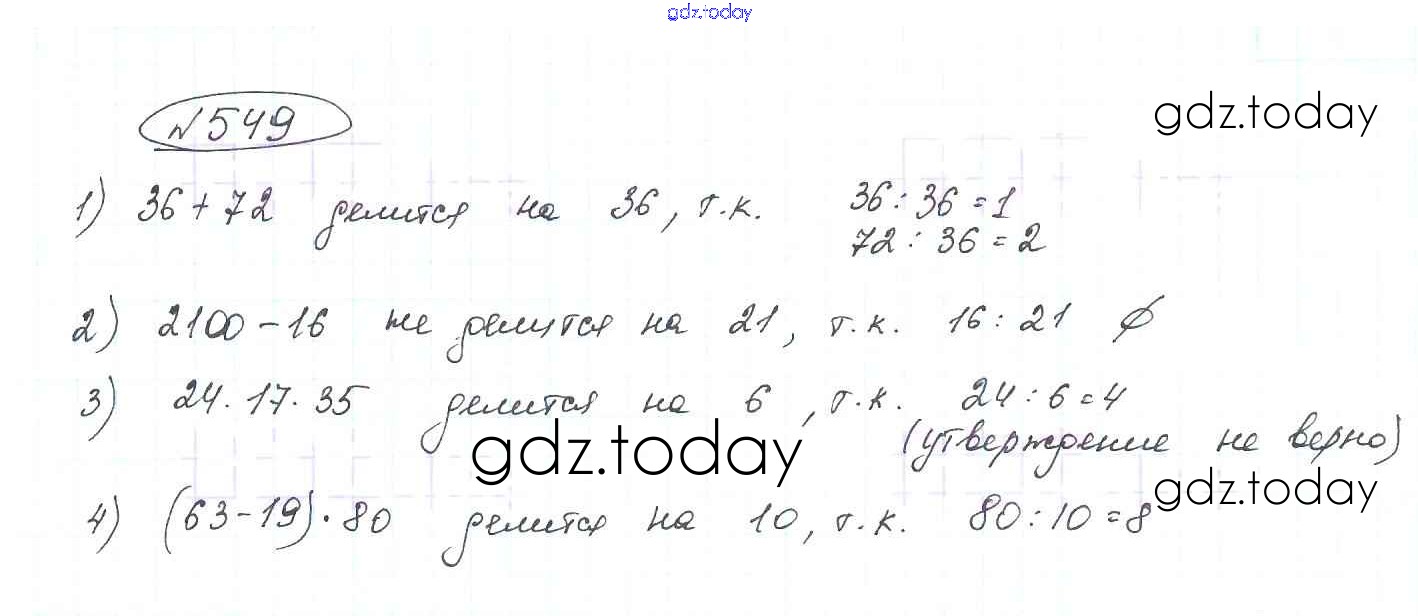 gdz.today
№549
gdz.today
1) 36+72 делится на 36, т.к. 36:36=1
72:36=2
2) 2100-16 не делится на 21, т.к. 16:21 ∅
3) 24·17·35 делится на 6, т.к. 24:6=4
(утверждение не верно)
gdz.today
gdz.today
4) (63-19)·80 делится на 10, т.к. 80:10=8